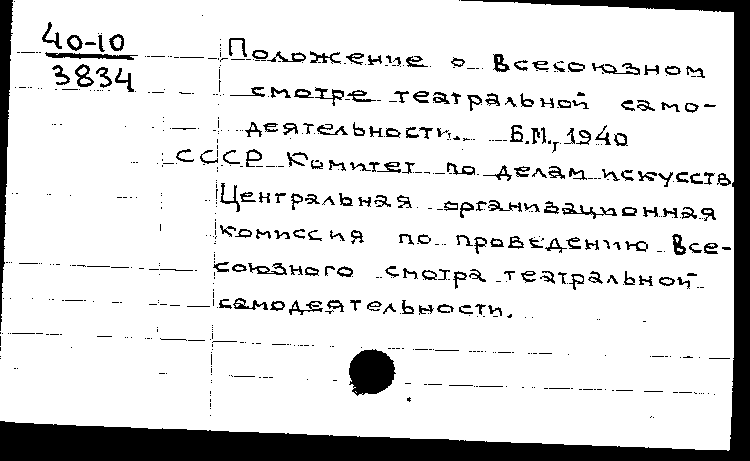 40-10
3834
Положение о Всесоюзном
смотре театральной само-
деятельности. Б.М., 1940
СССР Комитет по делам искусств.
Центральная организационная
комиссия по проведению Все-
союзного смотра театральной
самодеятельности.